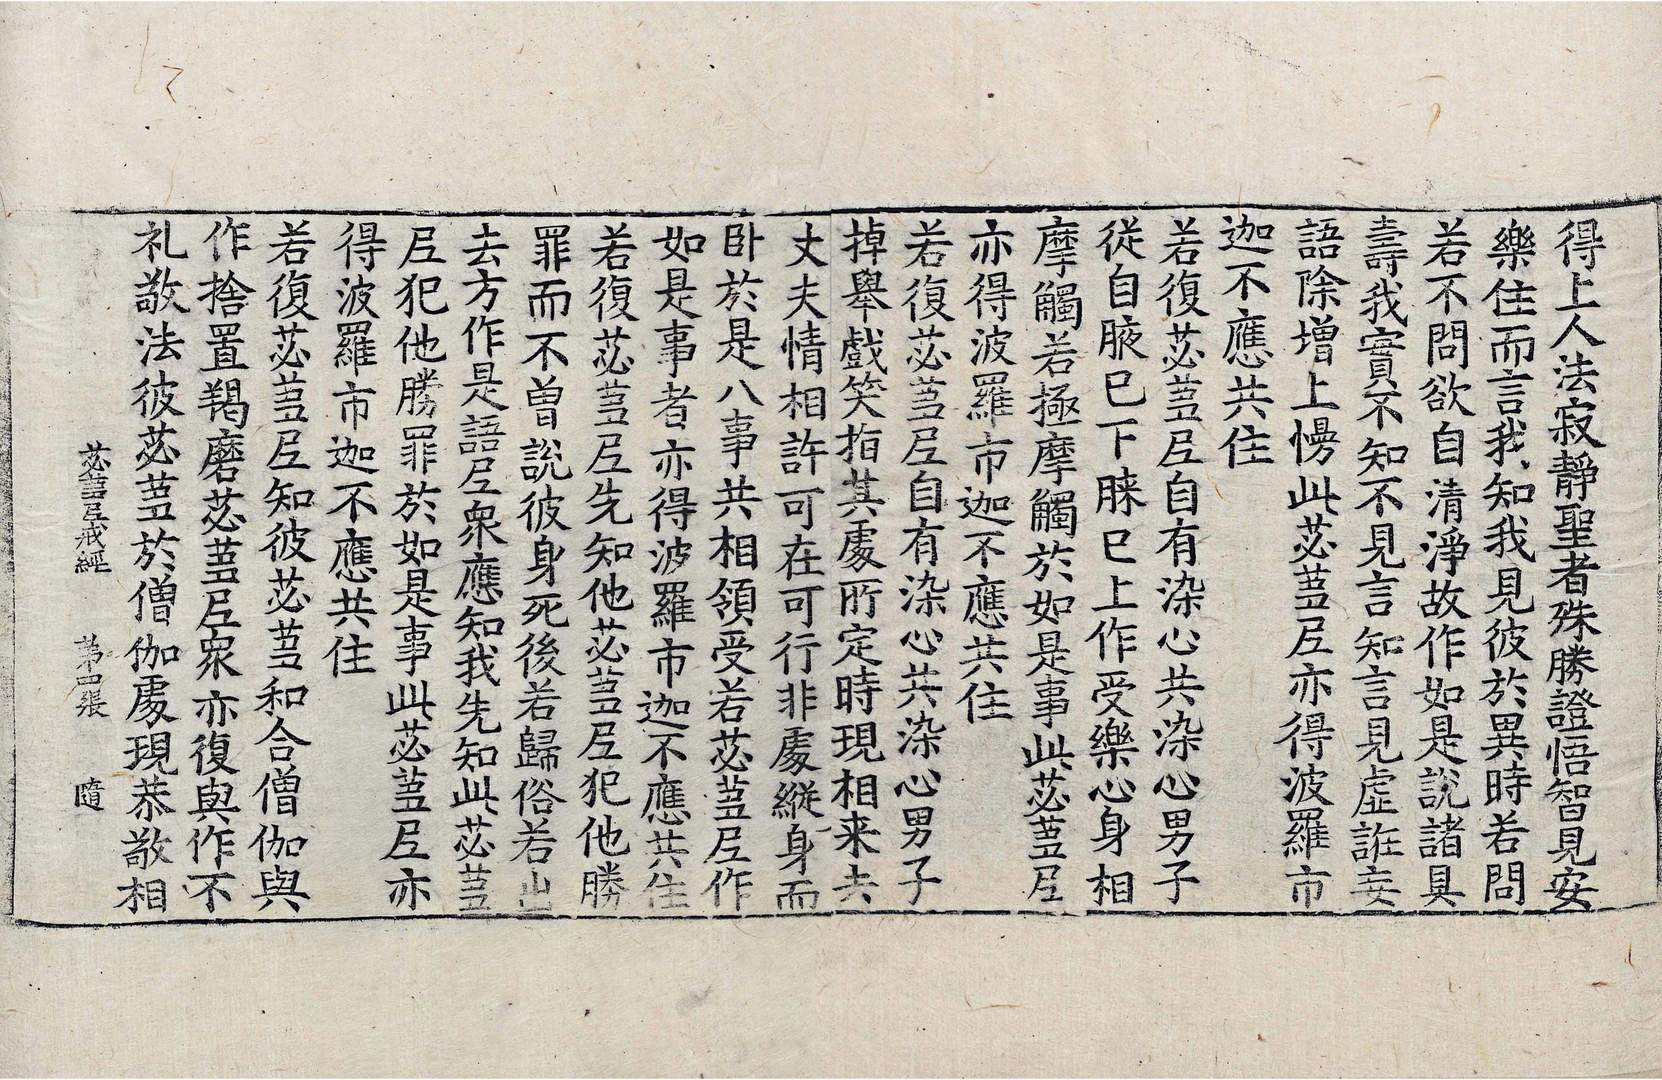 得上人法寂靜聖者殊勝證悟智見安
樂住而言我知我見彼於異時若問
若不問欲自清淨故作如是說諸具
壽我實不知不見言知言見虛誑妄
語除增上慢此苾蒭尼亦得波羅市
迦不應共住
若復苾蒭尼自有染心共染心男子
從自腋已下膝已上作受樂心身相
摩觸若極摩觸於如是事此苾蒭尼
亦得波羅市迦不應共住
若復苾蒭尼自有染心共染心男子
掉舉戲笑指其處所定時現相来去
丈夫情相許可在可行非處縱身而
卧於是八事共相領受若苾蒭尼作
如是事者亦得波羅市迦不應共住
若復苾蒭尼先知他苾蒭尼犯他勝
罪而不曾說彼身死後若歸俗若出
去方作是語尼衆應知我先知此苾蒭
尼犯他勝罪於如是事此苾蒭尼亦
得波羅市迦不應共住
若復苾蒭尼知彼苾蒭和合僧伽與
作捨置羯磨苾蒭尼衆亦復與作不
礼敬法彼苾蒭於僧伽處現恭敬相
苾蒭尼戒經　第四張　隨